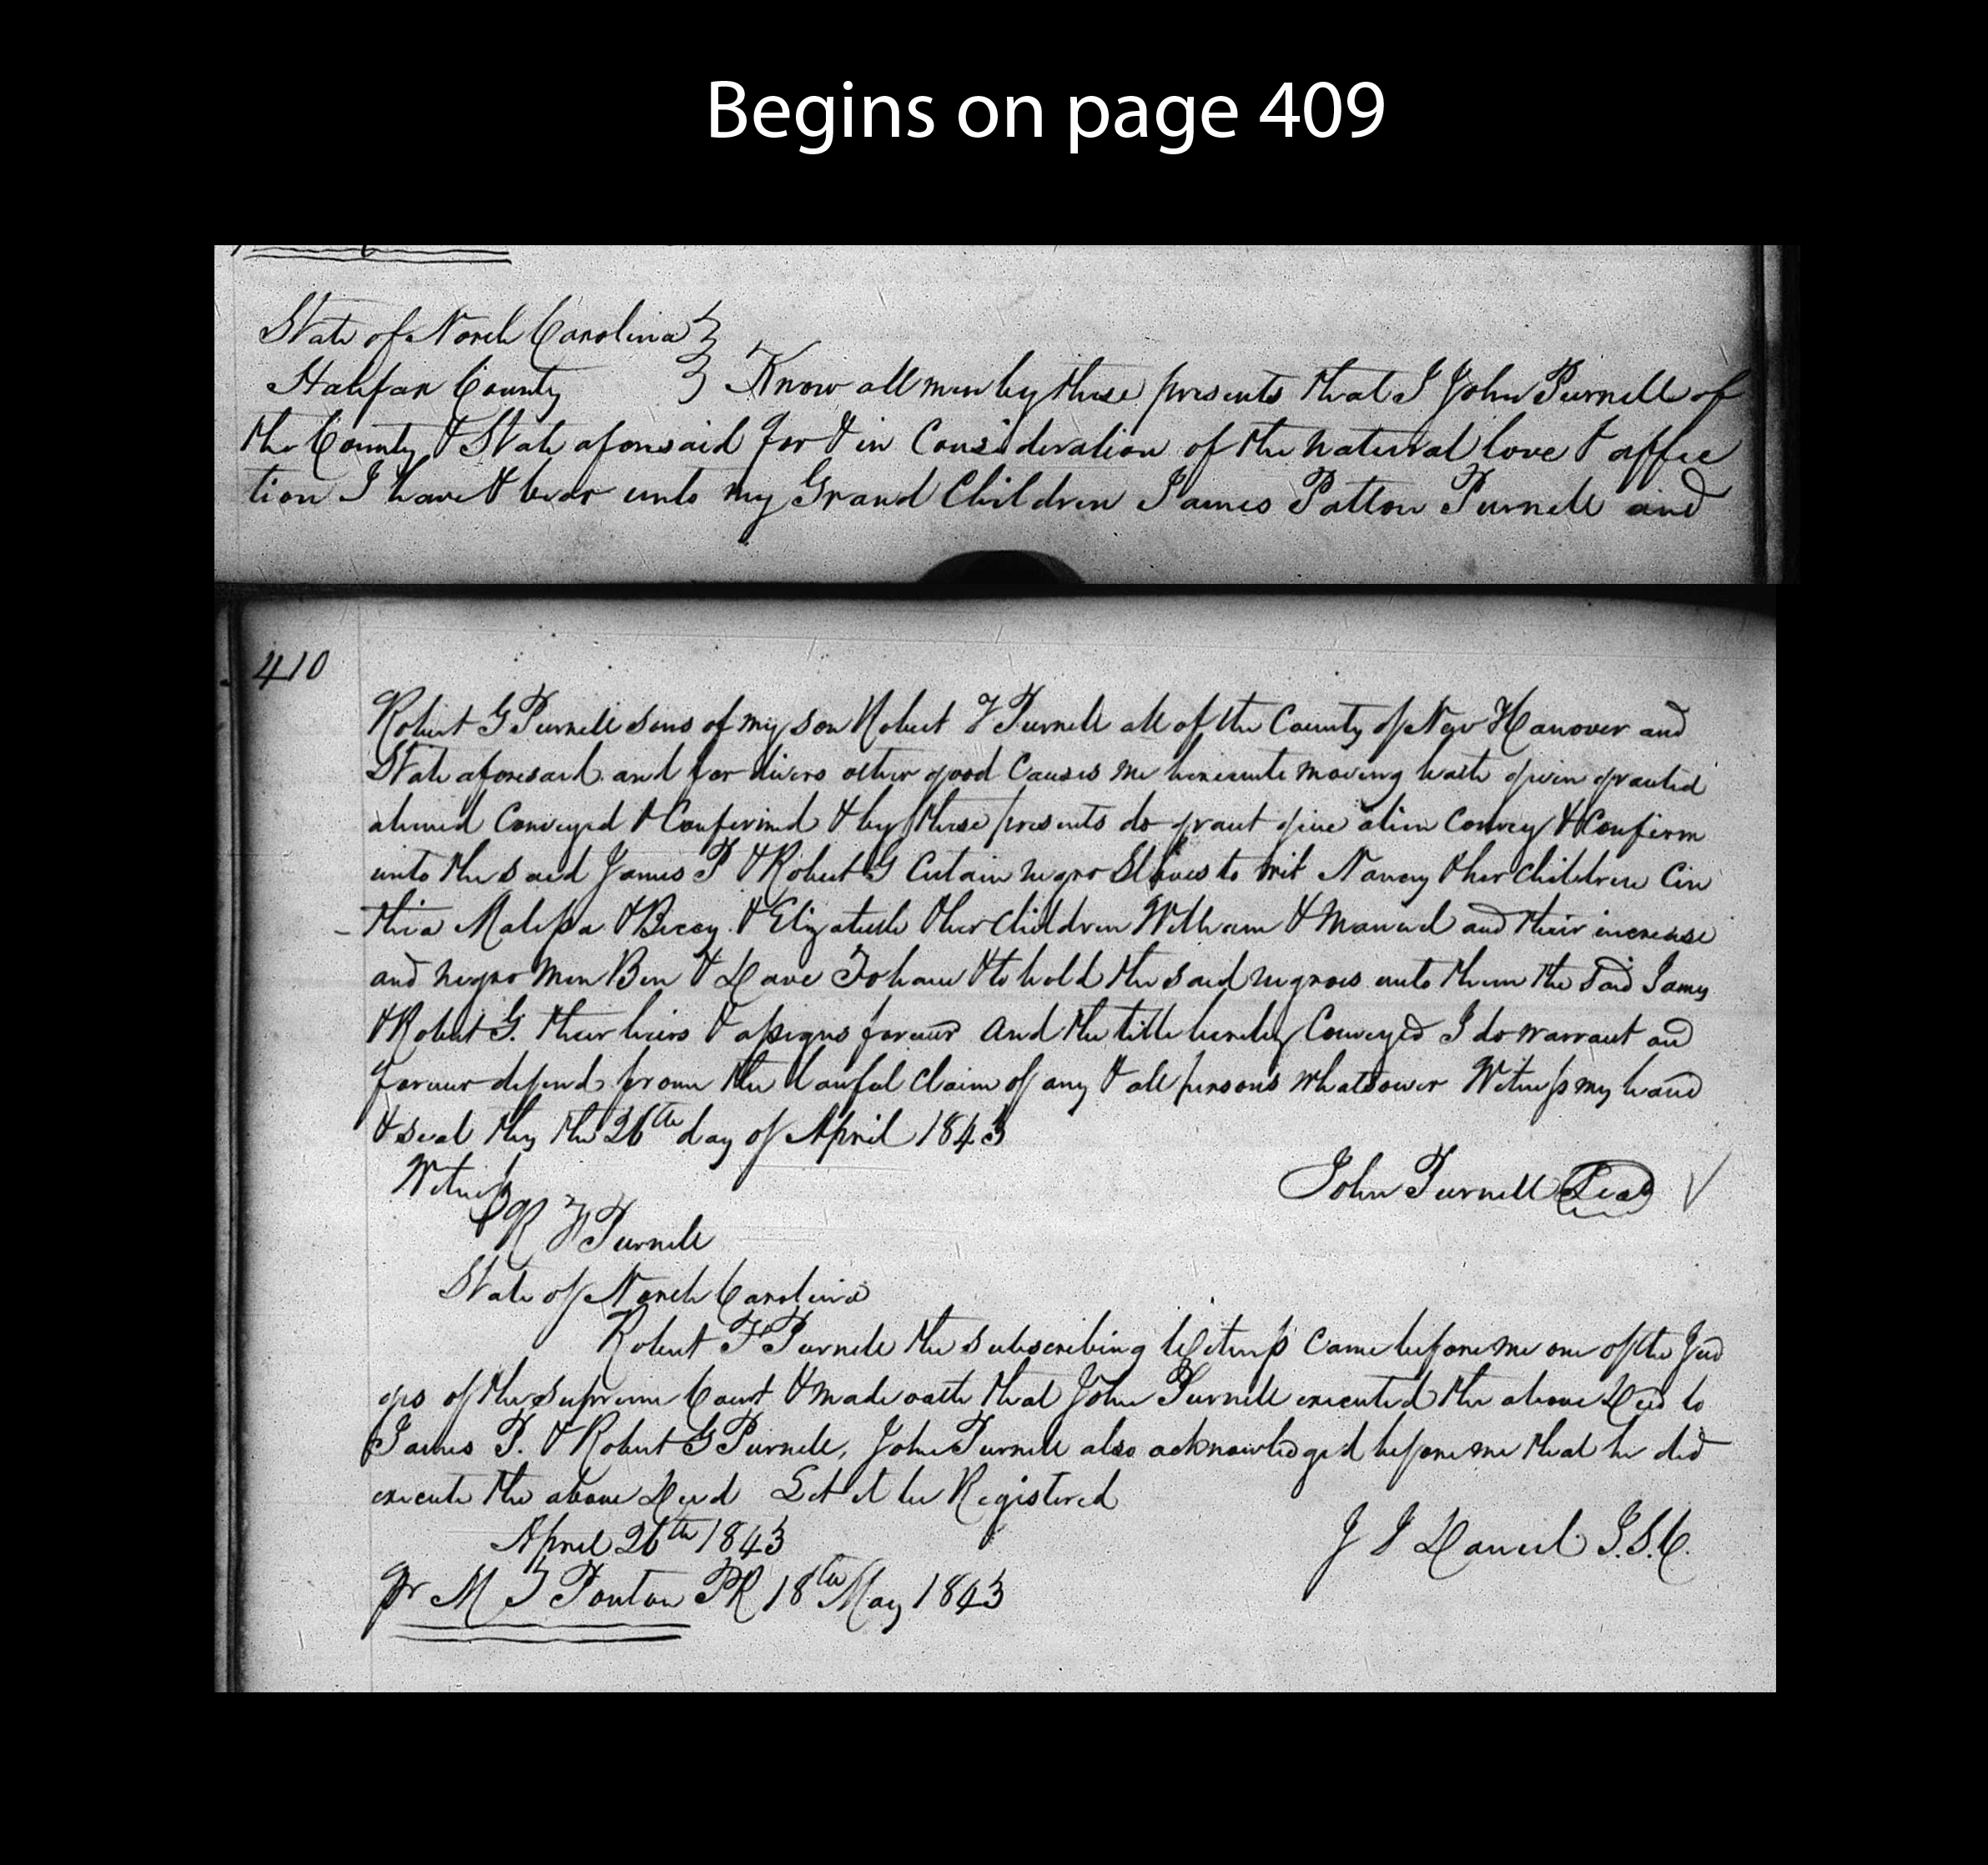 Begins on page 409
State of North Carolina }
Halifax County } Know all men by these presents that I John Purnell of
the County & State aforesaid for & in Consideration of the natural love & affec
tion I have & bear unto my Grand Children James Patton Purnell and
410
Robert G Purnell sons of my son Robert F Purnell all of the County of New Hanover and
State aforesaid and for divers other good Causes me hereunto moving hath given granted
aliened Conveyed & Confirmed & by these presents do grant give alien Convey & Confirm
unto the said James P & Robert G Certain negro Slaves to wit Nancy & her Children Cin
thia Malissa & Becay & Elizabeth & her Children William & Manuel and their increase
and negro men Ben & Dave To have & to hold the said negroes unto them the said James
& Robert G. their heirs & assigns forever And the title hereby Conveyed I do warrant and
forever defend from the lawful claim of any & all persons whatsoever Witness my hand
& seal this the 26th day of April 1843
Witness John Purnell Seal
R F Purnell
State of North Carolina
Robert F Purnell the subscribing Witness came before me one of the Jud
ges of the Supreme Court & made oath that John Purnell executed the above Deed to
James P. & Robert G Purnell, John Purnell also acknowledged before me that he did
execute the above Deed Let it be Registered
April 26th 1843 J J Daniel J.S.C.
Pr M T Ponton PR 18th May 1843